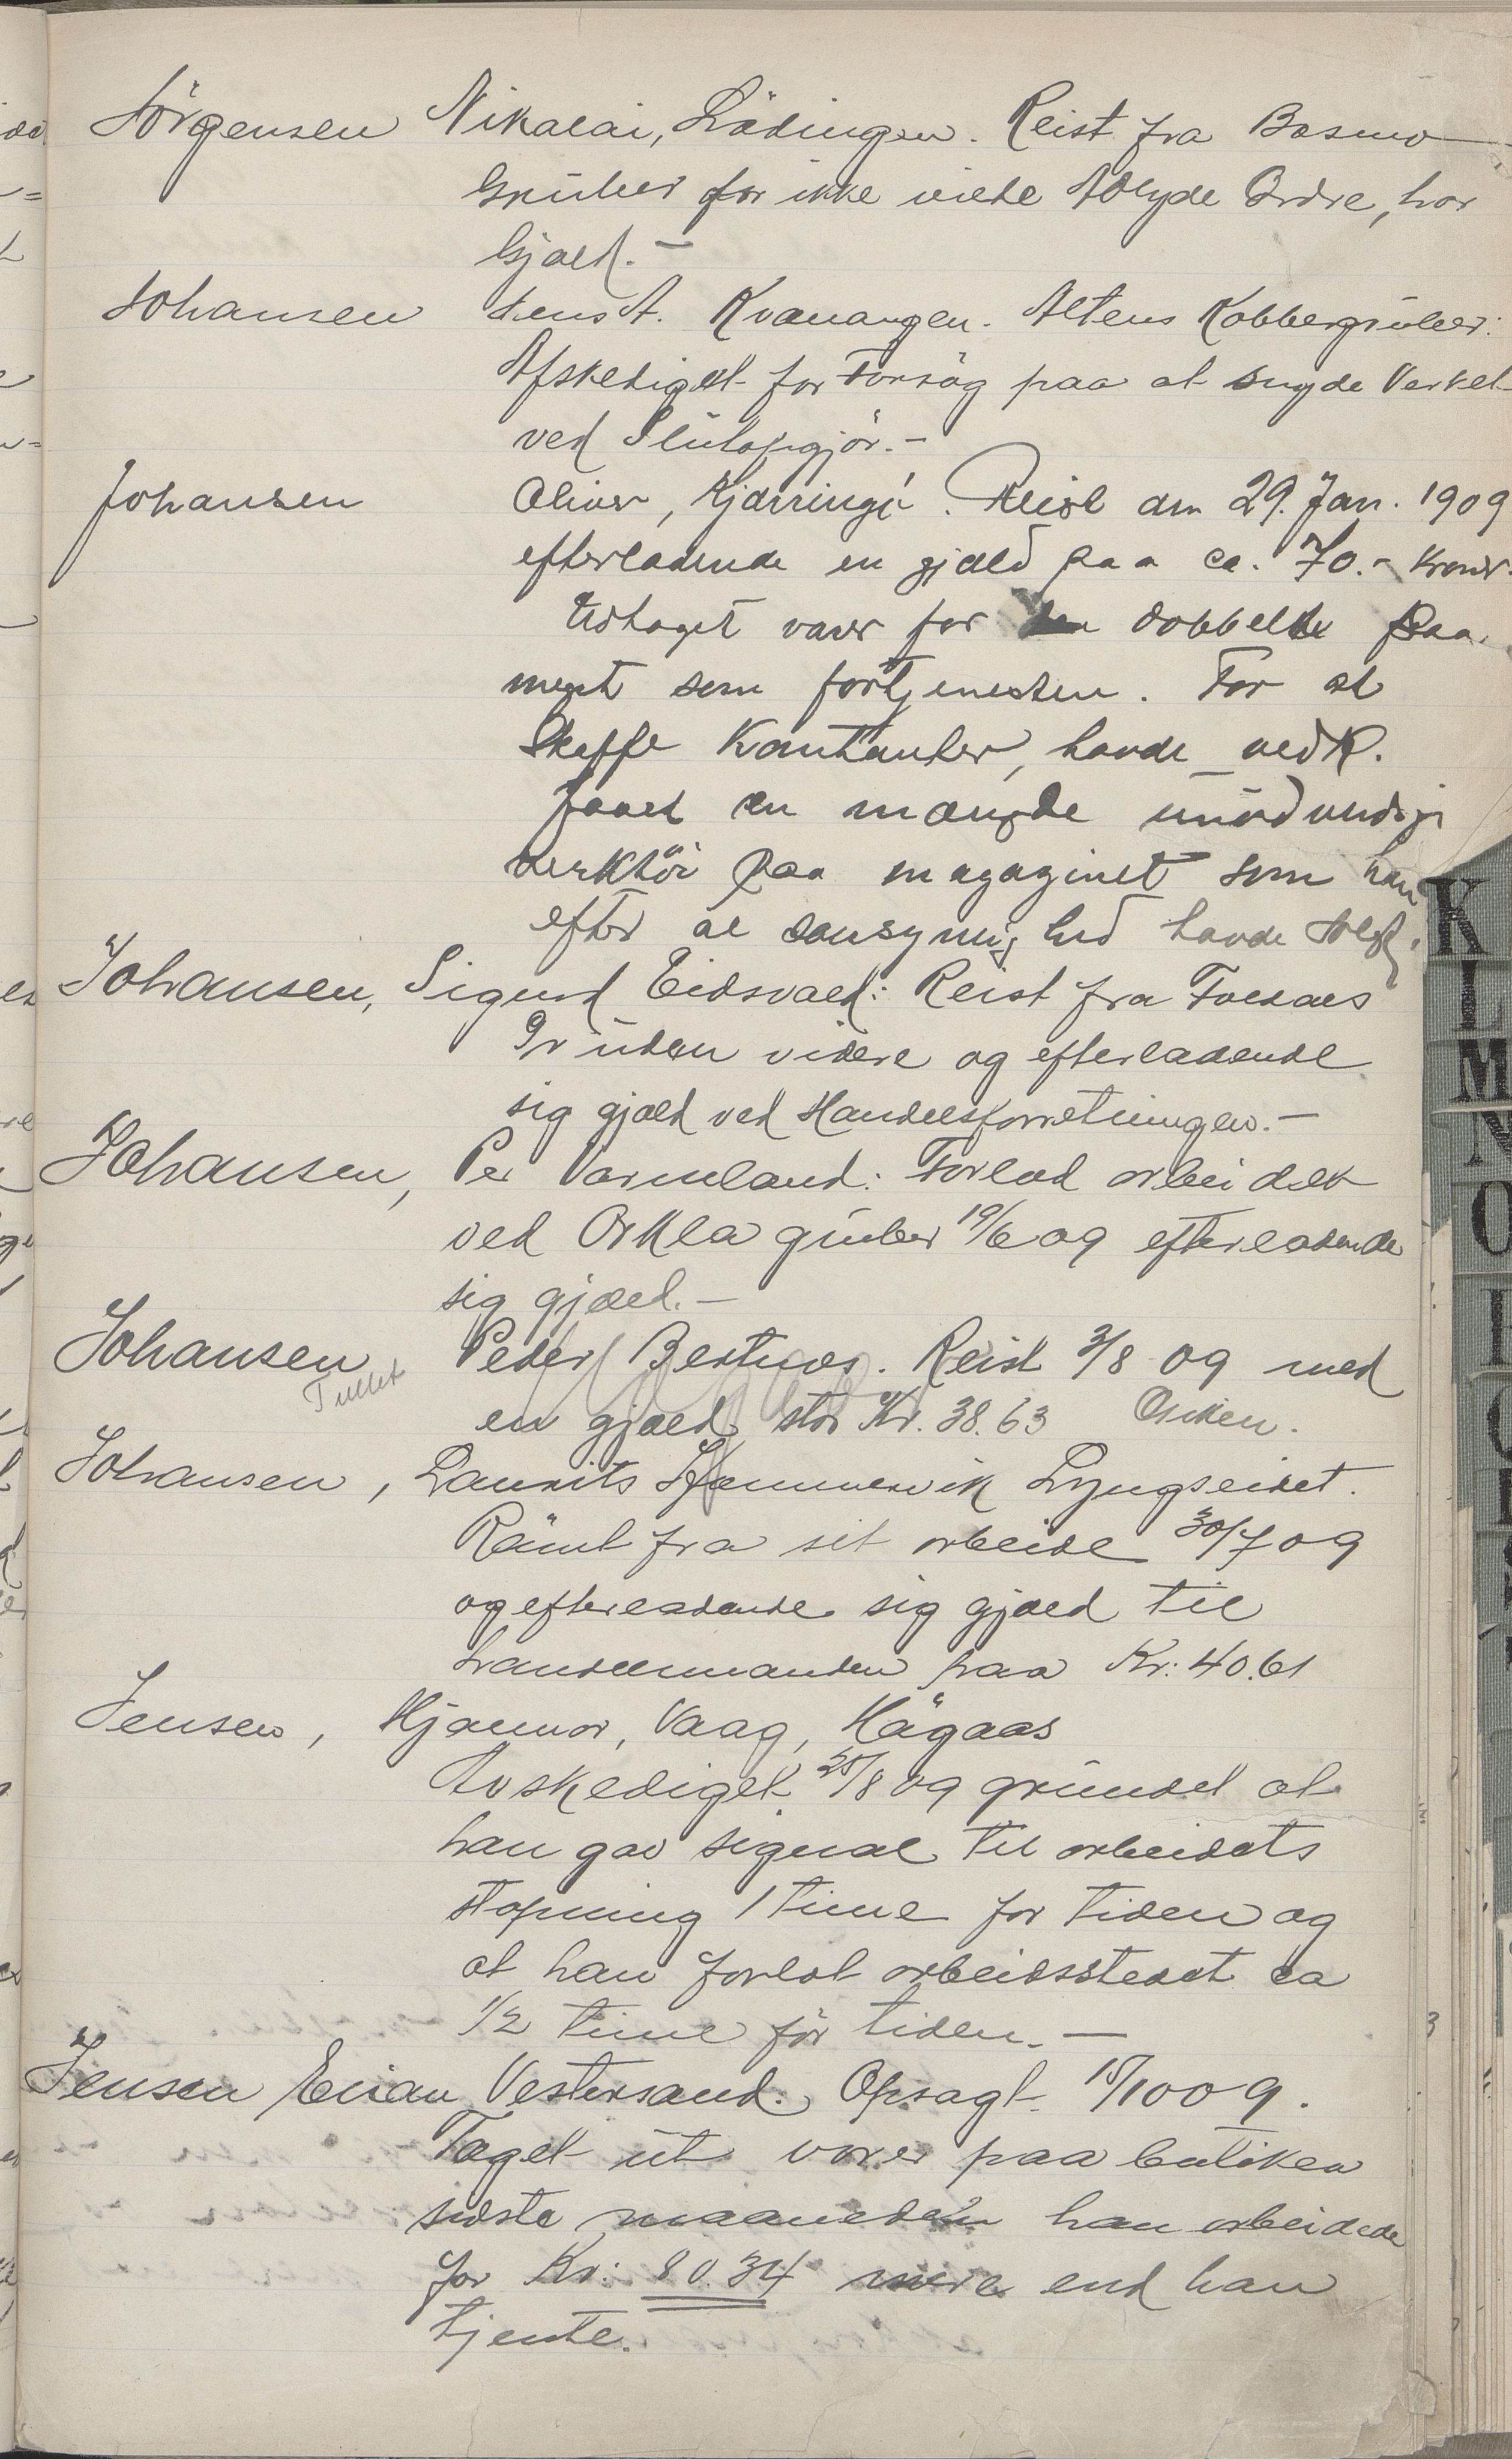 Jörgensen Nikolai, Lödingen. Reist fra Bosmo
Gruber for ikke vilde Adlyde Ordre, har
Gjæld. —
Johansen Jens A. Kvænangen. Altens Kobbergruber:
Afskediget for Forsög paa at snyde Verket
ved Slutopgjör. —
Johansen Oliver, Kjærringö. Reist den 29. Jan. 1909
efterladende en gjæld paa ca. 70.- Kroner.
Udtaget varer for dobbelte saa
meget som fortjenesten. For at
Skaffe Kontanter, havde vedk.
faaet en mængde unödvendig
verktöi paa magazinet som han
efter al sansynlighed havde solgt.
Johansen, Sigurd Eidsvold: Reist fra Foldals
Gruben videre og efterladende
sig gjæld ved Handelsforretningen. —
Johansen, Per Varmland: Forlod arbeidet
ved Orkla gruber 19/6 09 efterladende
sig gjæld. —
Johansen Peder Bertnes. Reist 3/8 09 med
en gjæld stor Kr. 38.63
Johansen, Laurits Hammervik Lyngseidet.
Römt fra sit arbeide 30/7 09
og efterladende sig gjæld til
handelsmanden paa Kr: 40.61
Jensen, Hjalmar, Vaag, Hägaas
Avskediget 25/8 09 grundet at
han gav signal til arbeidets
stopning 1 time for tiden og
at han forlot arbeidsstedet ca
1/2 time för tiden. —
Jensen Einar Vestersand. Opsagt 15/10 09.
Taget ut varer paa butiken
sidste maaneden han arbeidede
for Kr: 80.34 mere end han
tjente.
K
L
M
N
O